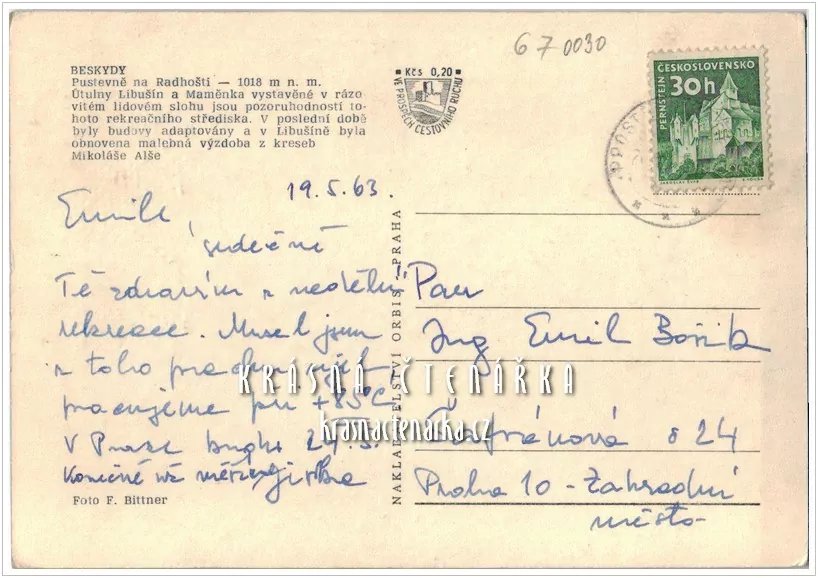 670030
BESKYDY
Pustevně na Radhošti — 1018 m n. m.
Útulny Libušín a Maměnka vystavěné v rázo-
vitém lidovém slohu jsou pozoruhodností to-
hoto rekreačního střediska. V poslední době
byly budovy adaptovány a v Libušíně byla
obnovena malebná výzdoba z kreseb
Mikoláše Alše
Kčs 0,20
VE PROSPĚCH CESTOVNÍHO RUCHU
ČESKOSLOVENSKO
30h
PERNŠTEJN
19.5.63.
Emile,
srdečně
Tě zdravím z nedělní
rekreace. Musel jsem
z toho
pracujeme při +85°C
V Praze budu 24.5.
Konečně už
Foto F. Bittner
NAKLADATELSTVÍ ORBIS, PRAHA
Pan
Ing Emil Bořik
Šafránová č 24
Praha 10 - Zahradní
město
KRÁSNÁ ČTENÁŘKA
krasnactenarka.cz